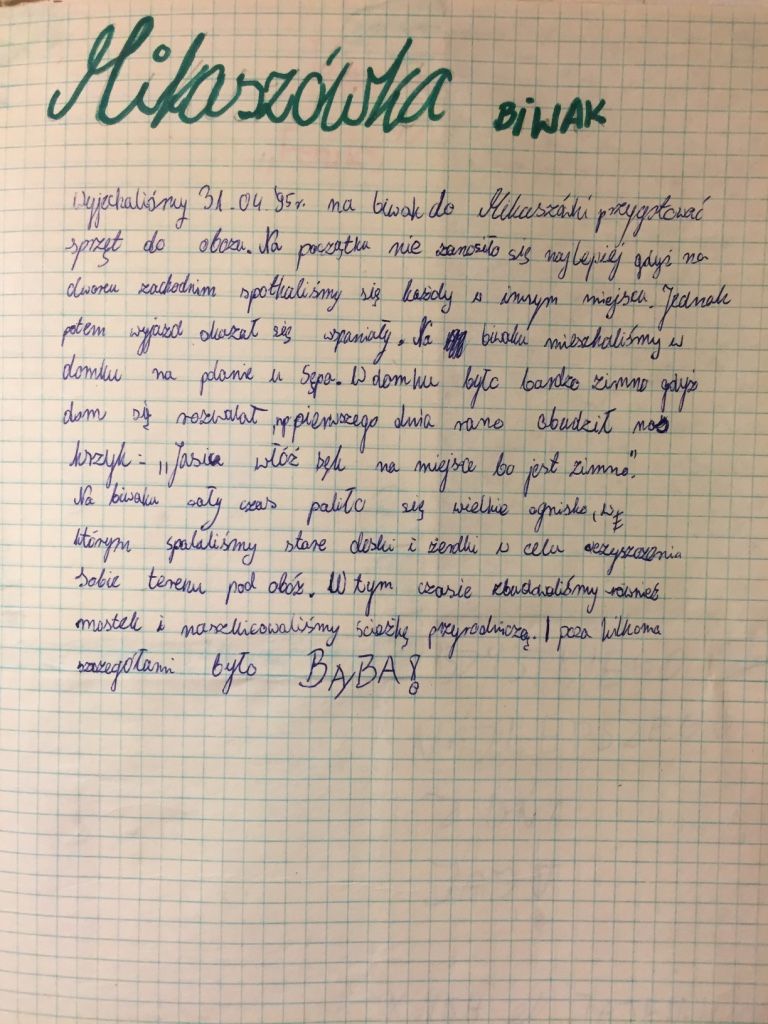 Mikaszówka BIWAK
Wyjechaliśmy 31.04.95r. na biwak do Mikaszówki przygotować
sprzęt do obozu. Na początku nie zanosiło się najlepiej gdyż na
dworcu zachodnim spotkaliśmy się każdy w innym miejscu. Jednak
potem wyjazd okazał się wspaniały. Na biwaku mieszkaliśmy w
domku na polanie u Sępa. W domku było bardzo zimno gdyż
dom się rozwalał, np pierwszego dnia rano obudził nas
krzyk: "Jasiu włóż sęk na miejsce bo jest zimno".
Na biwaku cały czas paliło się wielkie ognisko, w
którym spalaliśmy stare deski i żerdki w celu oczyszczenia
sobie terenu pod obóz. W tym czasie zbudowaliśmy również
mostek i naszkicowaliśmy ścieżkę przyrodniczą. I poza kilkoma
szczegółami było BĄBA!